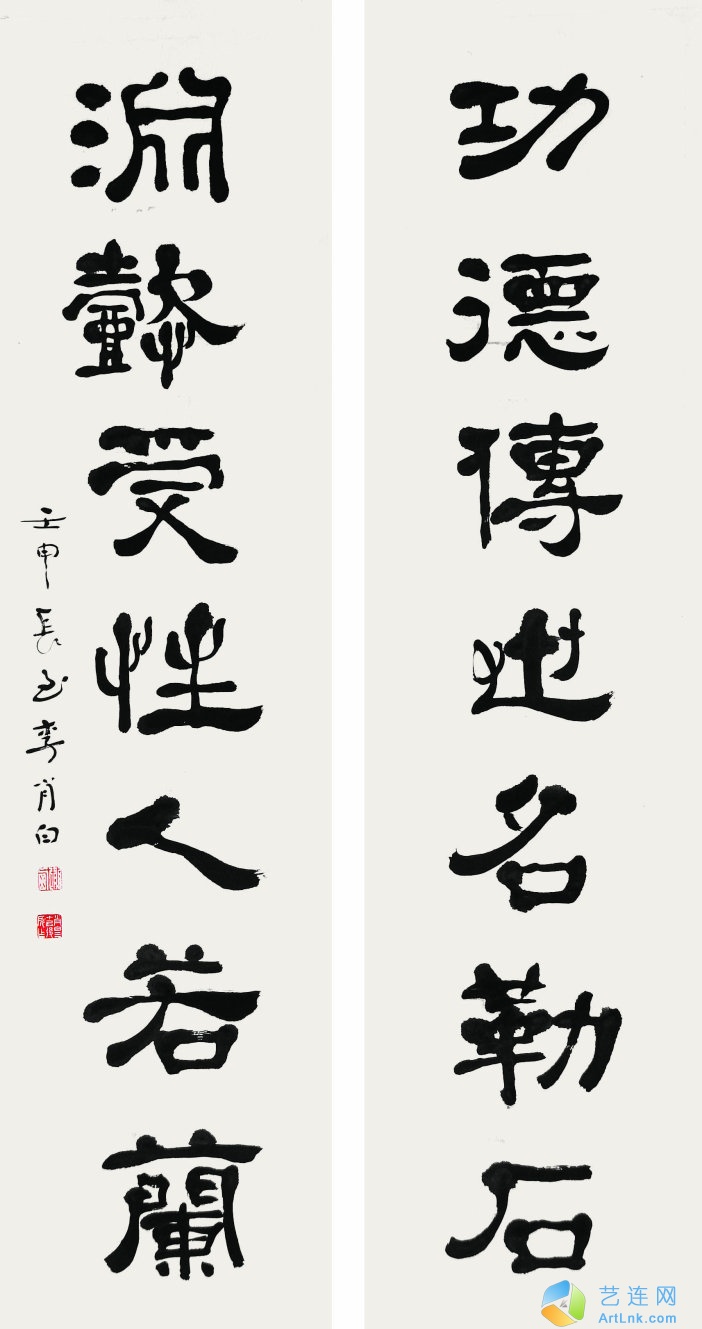 功德傳世名勒石
淵懿受性人若蘭
壬申長至李肖白
艺连网
ArtLnk.com